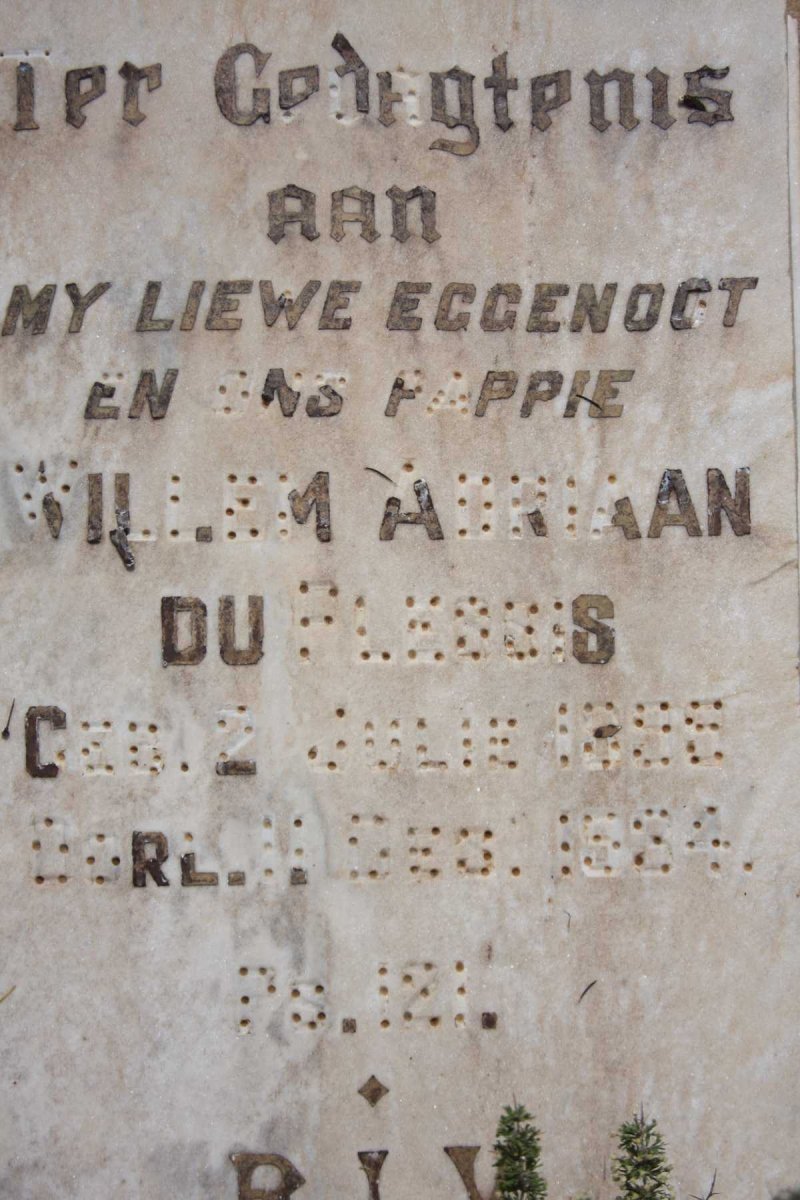 Ter Gedagtenis
aan
MY LIEWE EGGENOOT
EN ONS PAPPIE
WILLEM ADRIAAN
DU PLESSIS
GEB. 2 JULIE
OORL. 11 DES.
PS. 121.
R I V